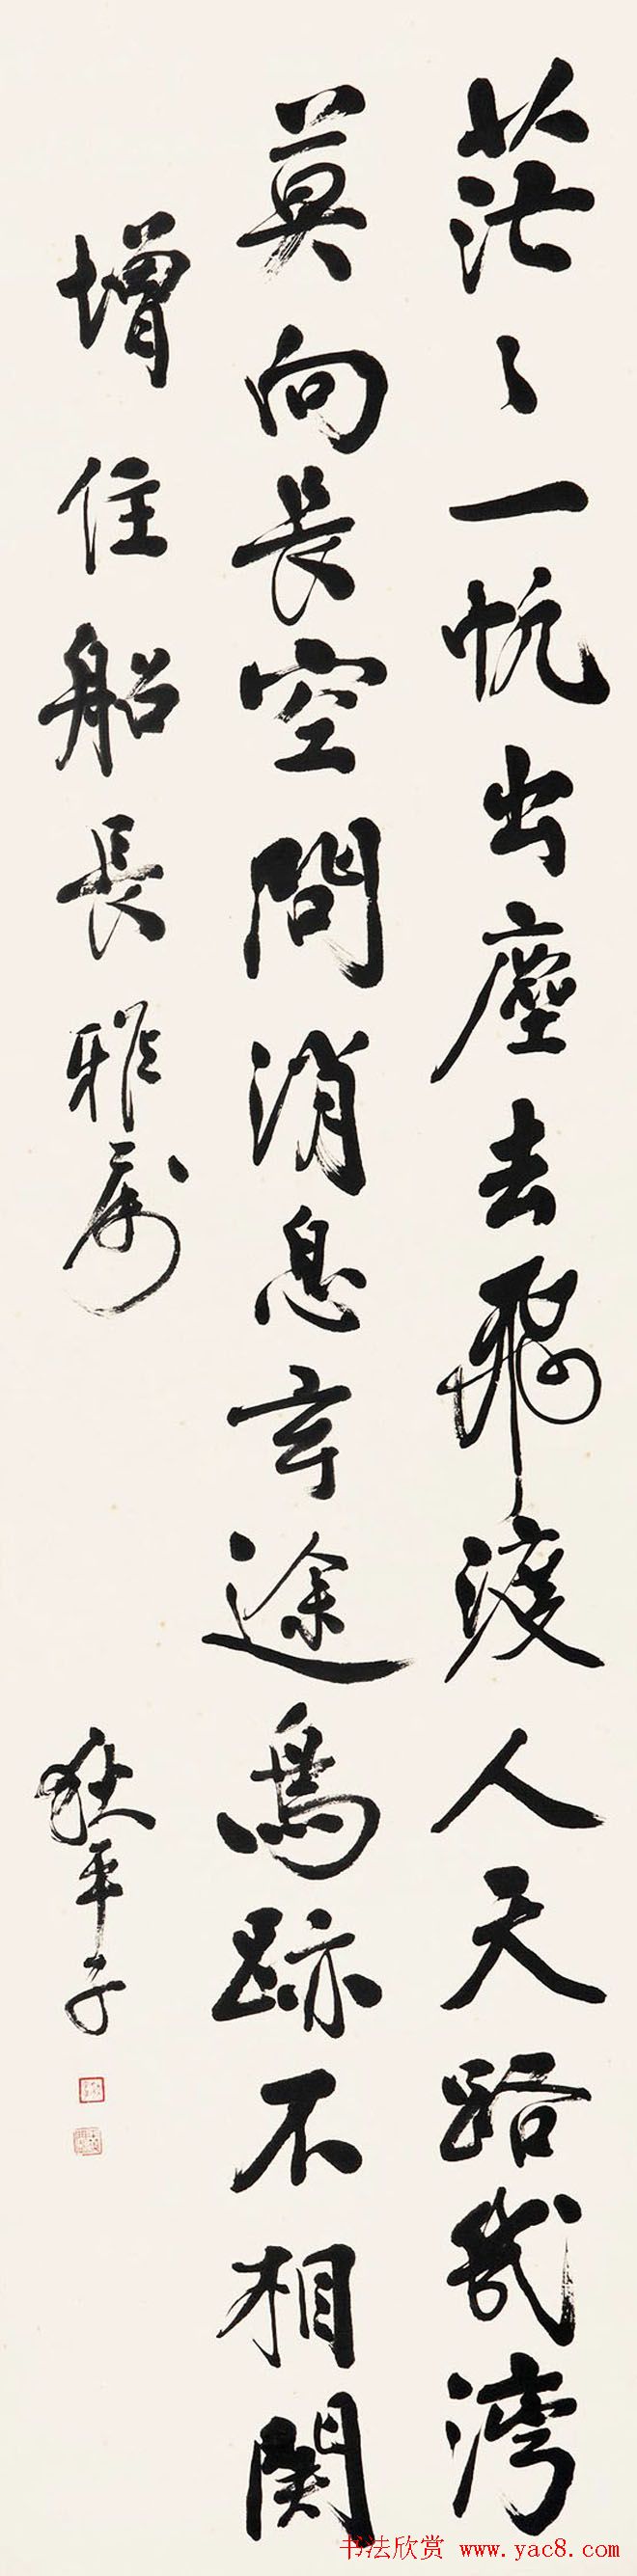 茫々一帆出塵去飛渡人天路幾灣
莫向長空問消息玄途鳥跡不相関
增住船長雅属
狄平子
书法欣赏 www.yac8.com